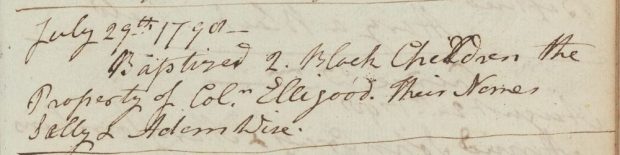 July 29th 1798 -
Baptized 2. Black Children the
Property of Coln Elligood. their Names
Sally & Adam Wise.